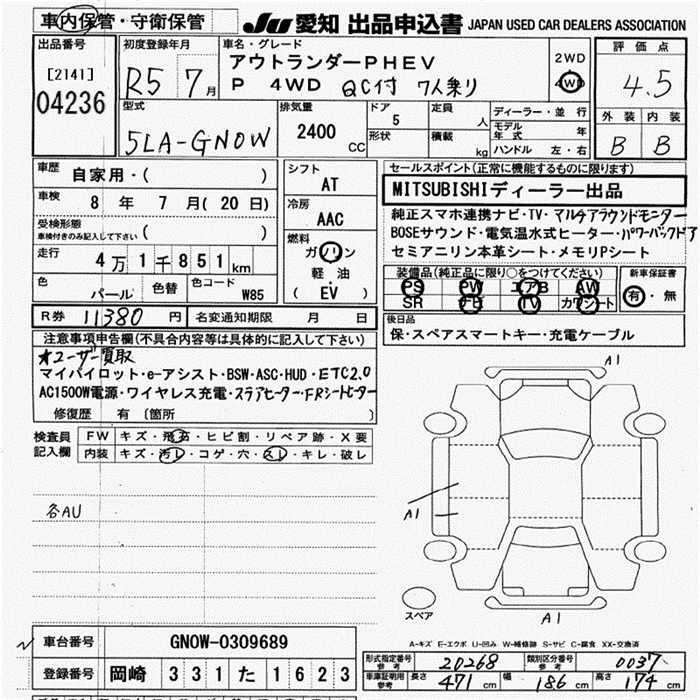 車内保管・守衛保管
JU 愛知 出品申込書 JAPAN USED CAR DEALERS ASSOCIATION
出品番号
[2141]
04236
初度登録年月
R5 7月
車名・グレード
アウトランダーPHEV
P 4WD QC付 7人乗り
2WD
4WD
評価点
4.5
型式
5LA-GN0W
排気量
2400
CC
ドア
5
形状
定員
人
積載
kg
ディーラー・並行
モデル年式 年
ハンドル 左・右
外装 内装
B B
車歴
自家用・( )
車検
8年 7月(20日)
受検形態
車検付きのみ記入して下さい ( )
走行
4万1千851km
色
パール
色替
色コード
W85
シフト
AT
冷房
AAC
燃料
ガソリン
軽油
(EV)
セールスポイント(正常に機能するものに限ります)
MITSUBISHIディーラー出品
純正スマホ連携ナビ・TV・マルチアラウンドモニター
BOSEサウンド・電気温水式ヒーター・パワーバックドア
セミアニリン本革シート・メモリPシート
装備品(純正品に限り○をつけてください)
PS PW エアB AW
SR ナビ TV カワシート
新車保証書
有・無
R券 11380円
名変通知期限 月 日
後日品
保・スペアスマートキー・充電ケーブル
注意事項申告欄(不具合内容等は具体的に記入して下さい)
★ユーザー買取
マイパイロット・e-アシスト・BSW・ASC・HUD・ETC2.0
AC1500W電源・ワイヤレス充電・ステアヒーター・FRシートヒーター
修復歴 有 〔箇所 〕
検査員記入欄
FW キズ・飛石・ヒビ割・リペア跡・X要
内装 キズ・汚レ・コゲ・穴・スレ・キレ・破レ
各AU
A1
A1
A1
スペア
A-キズ E-エクボ U-凹み W-補修跡 S-サビ C-腐食 XX-交換済
車台番号 GN0W-0309689
登録番号 岡崎 331 た 1623
形式指定番号 参考 20268
類別区分番号 参考 0037
車庫証明用参考 長さ 471cm 幅 186cm 高さ 174cm